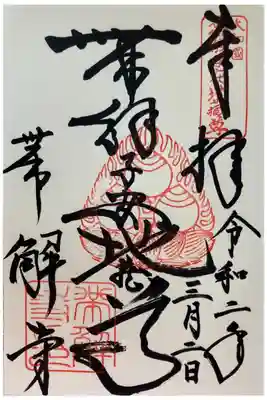 奉拝
令和二年
三月二日
帯解子安地蔵尊
帯解寺